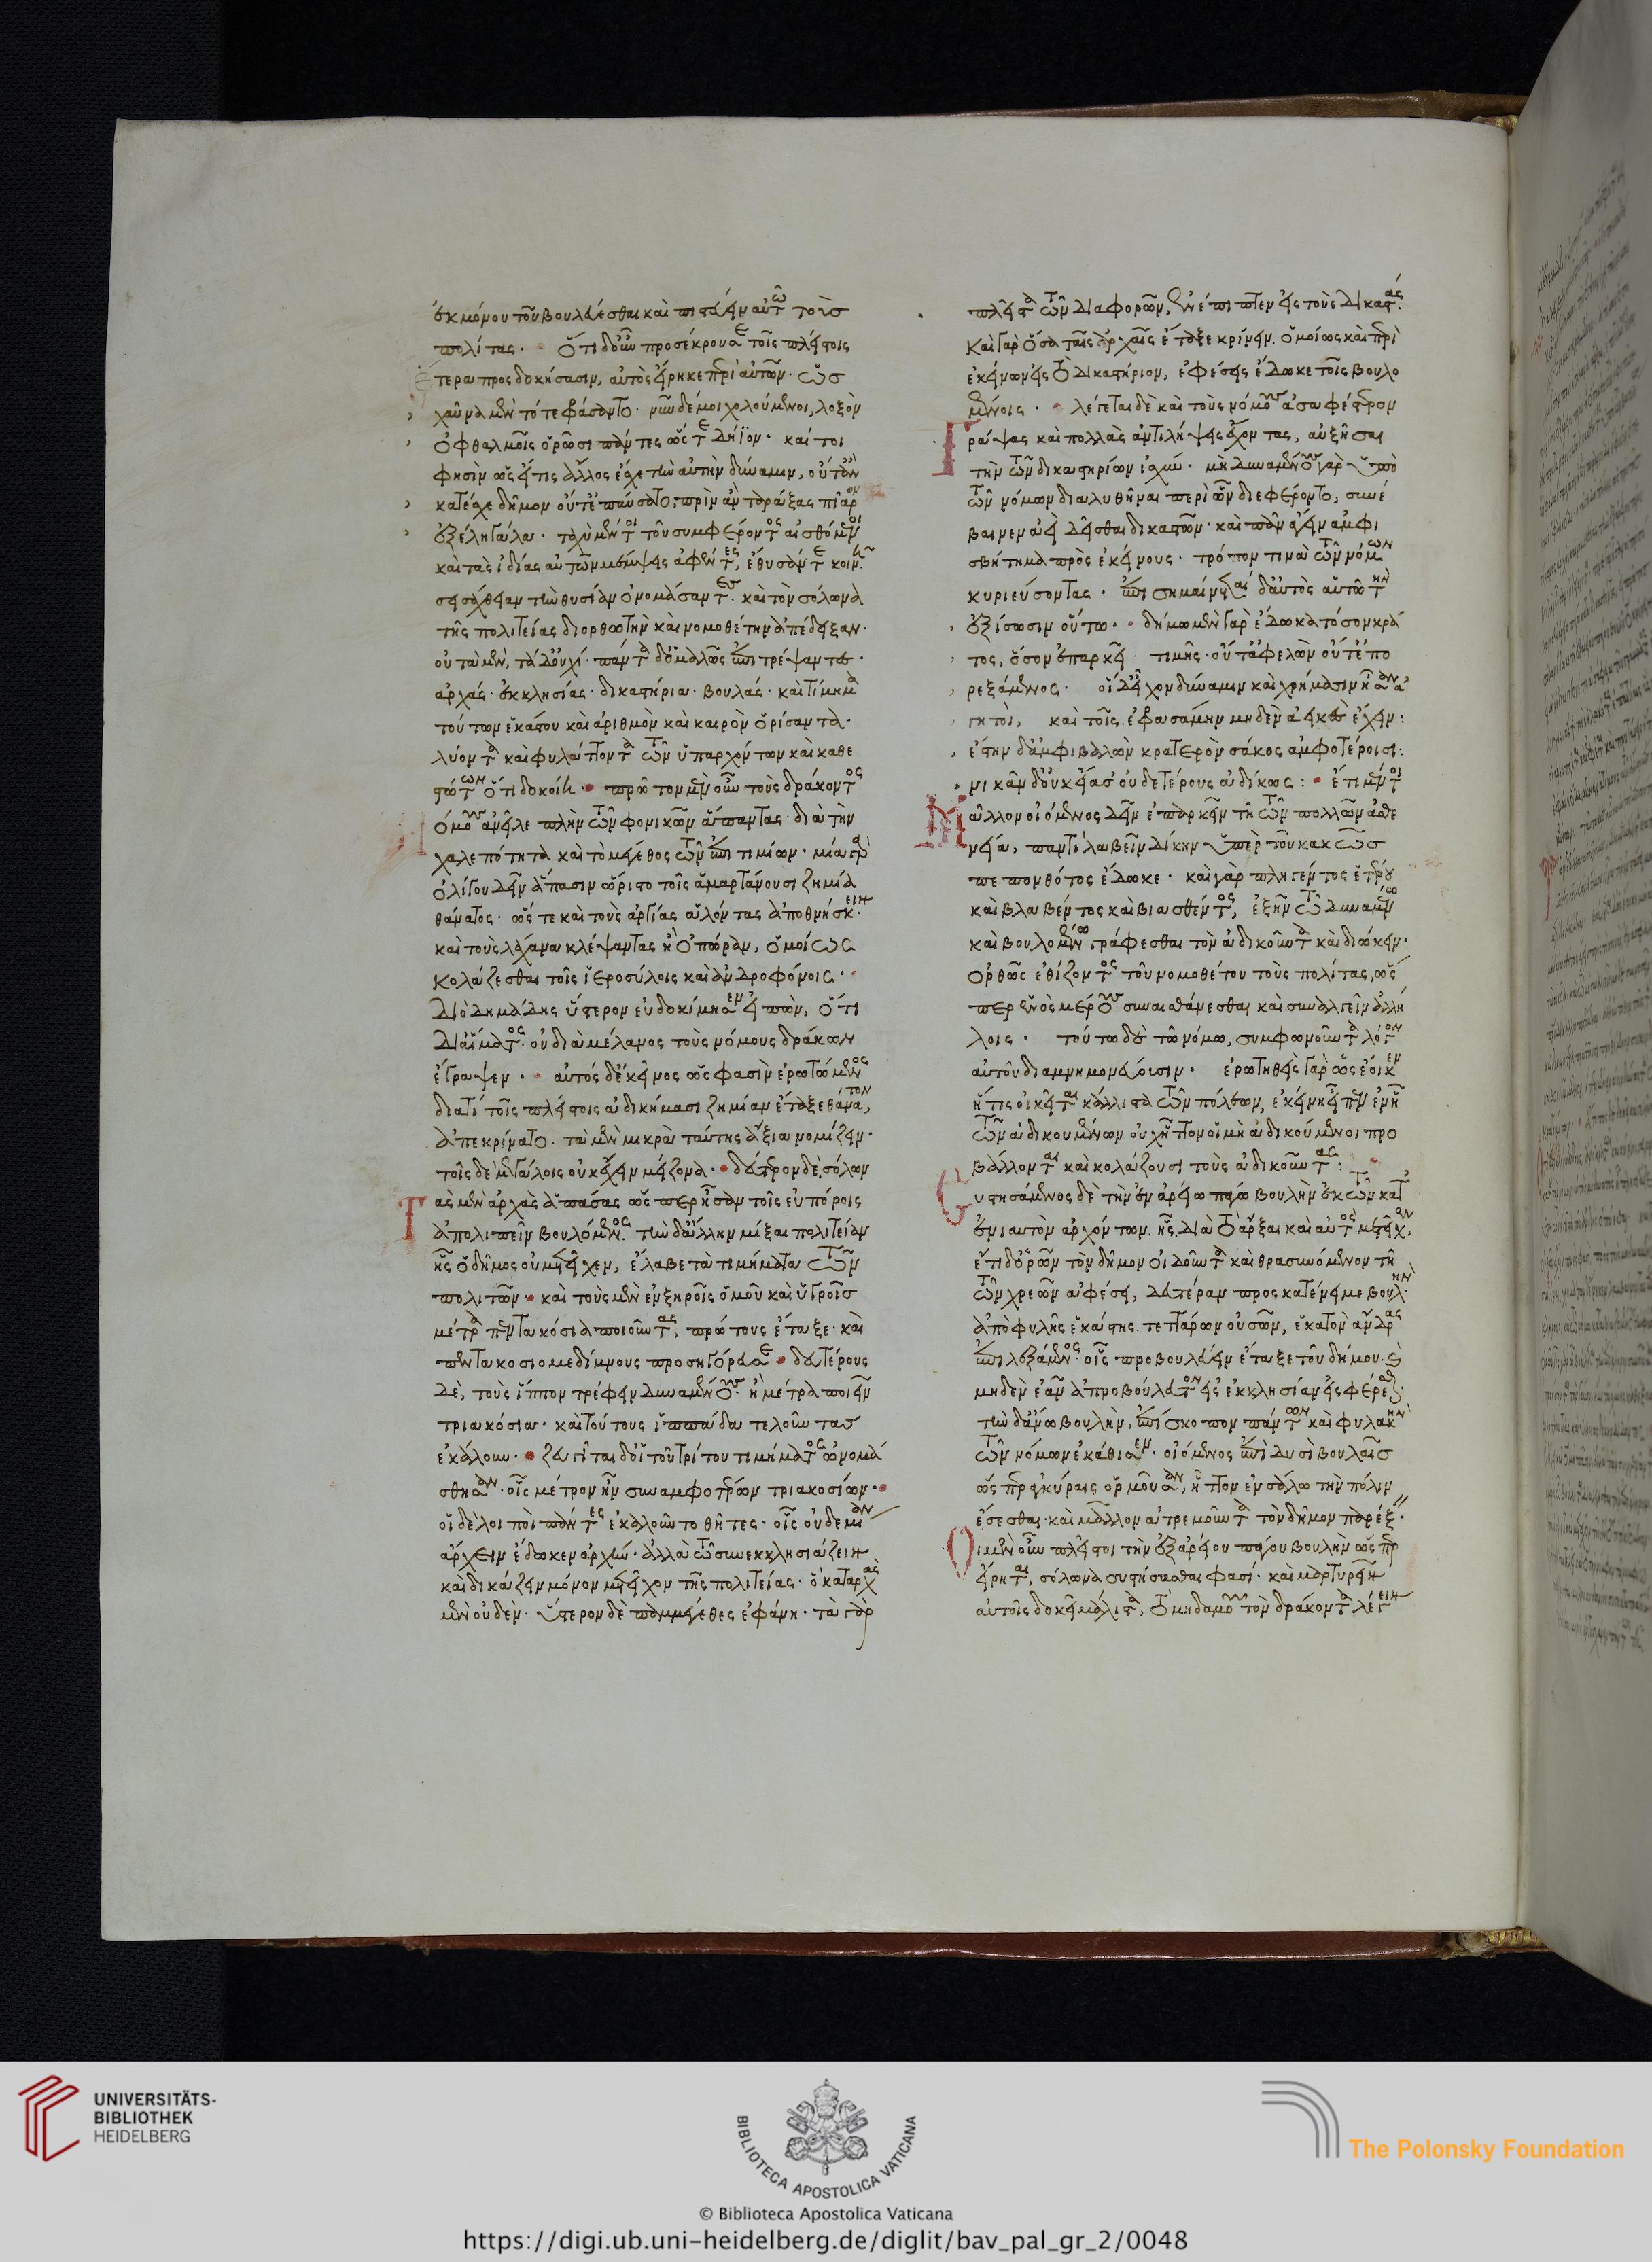 ἐκ μόνου τοῦ βούλεσθαι καὶ πιστεύειν αὐτῶ τοὺς
πολίτας. Ὅτι δ' οὖν προσέκρουσε τοῖς πλείστοις
ἕτερα προσδοκήσασιν, αὐτὸς εἴρηκε περὶ αὐτῶν. ὡς
χαῦνα μὲν τότε φράσαντο. νῦν δέ μοι χολούμενοι, λοξὸν
ὀφθαλμοῖς ὁρῶσι πάντες ὥστε δήϊον. καίτοι
φησὶν ὡς εἴ τις ἄλλος ἔσχε τὴν αὐτὴν δύναμιν, οὔτ' ἂν
κατέσχε δῆμον οὔτ' ἐπαύσατο, πρὶν ἂν ταράξας πῖαρ
ἐξέλη γάλα. ταχὺ μέντοι τοῦ συμφέροντος αἰσθόμενοι
καὶ τὰς ἰδίας αὐτῶν μέμψεις ἀφέντες, ἔθυσάν τε κοινῆ
σεισάχθειαν τὴν θυσίαν ὀνομάσαντες. καὶ τὸν σόλωνα
τῆς πολιτείας διορθωτὴν καὶ νομοθέτην ἀπέδειξαν.
οὐ τὰ μὲν, τὰ δ' οὐχί. πάντα δ' ὁμαλῶς ἐπιτρέψαντες.
ἀρχάς. ἐκκλησίας. δικαστήρια. βουλάς. καὶ τίμημα
τούτων ἑκάστου καὶ ἀριθμὸν καὶ καιρὸν ὁρίσαντα.
λύοντα καὶ φυλάττοντα τῶν ὑπαρχόντων καὶ καθε
στώτων ὅτι δοκοίη. πρῶτον μὲν οὖν τοὺς δράκοντος
νόμους ἀνεῖλε πλὴν τῶν φονικῶν ἅπαντας. διὰ τὴν
χαλεπότητα καὶ τὸ μέγεθος τῶν ἐπιτιμίων. μία γὰρ
ὀλίγου δεῖν ἅπασιν ὥριστο τοῖς ἁμαρτάνουσι ζημία
θάνατος. ὥστε καὶ τοὺς ἀργίας ἁλόντας ἀποθνήσκειν.
καὶ τοὺς λάχανα κλέψαντας ἢ ὀπώραν, ὁμοίως
κολάζεσθαι τοῖς ἱεροσύλοις καὶ ἀνδροφόνοις.
Διὸ Δημάδης ὕστερον εὐδοκίμησεν εἰπὼν, ὅτι
Δι' αἵματος. οὐ διὰ μέλανος τοὺς νόμους δράκων
ἔγραψεν. αὐτὸς δ' ἐκεῖνος ὥς φασὶν ἐρωτώμενος
διατί τοῖς πλείστοις ἀδικήμασι ζημίαν ἔταξε θάνατον,
ἀπεκρίνατο. τὰ μὲν μικρὰ ταύτης ἄξια νομίζειν.
τοῖς δὲ μεγάλοις οὐκ ἔχειν μείζονα. δεύτερον δὲ, σόλων
Τὰς μὲν ἀρχὰς ἁπάσας ὥσπερ ἦσαν τοῖς εὐπόροις
ἀπολιπεῖν βουλόμενος. τὴν δ' ἄλλην μίξαι πολιτείαν
ἧς ὁ δῆμος οὐ μετεῖχεν, ἔλαβε τὰ τιμήματα τῶν
πολιτῶν. καὶ τοὺς μὲν ἐν ξηροῖς ὁμοῦ καὶ ὑγροῖς
μέτρα πεντακόσια ποιοῦντας, πρώτους ἔταξε. καὶ
πεντακοσιομεδίμνους προσηγόρευσε. δευτέρους
δὲ, τοὺς ἵππον τρέφειν δυναμένους. ἢ μέτρα ποιεῖν
τριακόσια. καὶ τούτους ἱππάδα τελοῦντας
ἐκάλουν. ζευγῖται δ' οἱ τοῦ τρίτου τιμήματος ὠνομά
σθησαν. οἷς μέτρον ἦν συναμφοτέρων τριακοσίων.
οἱ δὲ λοιποὶ πάντες ἐκαλοῦντο θῆτες. οἷς οὐδεμίαν
ἄρχειν ἔδωκεν ἀρχήν. ἀλλὰ τῶ συνεκκλησιάζειν
καὶ δικάζειν μόνον μετεῖχον τῆς πολιτείας. ὃ κατ' ἀρχὰς
μὲν οὐδὲν. ὕστερον δὲ παμμέγεθες ἐφάνη. τὰ γὰρ
πλεῖστα τῶν διαφορῶν, ἐνέπιπτεν εἰς τοὺς δικαστάς.
Καὶ γὰρ ὅσα ταῖς ἀρχαῖς ἔταξε κρίνειν. ὁμοίως καὶ περὶ
ἐκείνων εἰς τὸ δικαστήριον, ἐφέσεις ἔδωκε τοῖς βουλο
μένοις. λέγεται δὲ καὶ τοὺς νόμους ἀσαφέστερον
Γράψας καὶ πολλὰς ἀντιλήψεις ἔχοντας, αὐξῆσαι
τὴν τῶν δικαστηρίων ἰσχύν. μὴ δυναμένους γὰρ ὑπὸ
τῶν νόμων διαλυθῆναι περὶ ὧν διεφέροντο, συνέ
βαινεν ἀεὶ δεῖσθαι δικαστῶν. καὶ πᾶν ἄγειν ἀμφι
σβήτημα πρὸς ἐκείνους. τρόπον τινὰ τῶν νόμων
κυριεύοντας. ἐπισημαίνεται δ' αὐτὸς αὑτῶ τὴν
ἐξίσωσιν οὕτω. δήμω μὲν γὰρ ἔδωκα τόσον κρά
τος, ὅσον ἐπαρκεῖ τιμῆς. οὔτ' ἀφελὼν οὔτ' ἐπο
ρεξάμενος. οἳ δ' εἶχον δύναμιν καὶ χρήμασιν ἦσαν ἀ
γητοὶ, καὶ τοῖς ἐφρασάμην μηδὲν ἀεικὲς ἔχειν:
ἔστην δ' ἀμφιβαλὼν κρατερὸν σάκος ἀμφοτέροισι:
νικᾶν δ' οὐκ εἴασ' οὐδετέρους ἀδίκως: ἔτι μέντοι
Μᾶλλον οἰόμενος δεῖν ἐπαρκεῖν τῆ τῶν πολλῶν ἀσθε
νεία, παντὶ λαβεῖν δίκην ὑπὲρ τοῦ κακῶς
πεπονθότος ἔδωκε. καὶ γὰρ πληγέντος ἑτέρου
καὶ βλαβέντος καὶ βιασθέντος, ἐξῆν τῶ δυναμένω
καὶ βουλομένω γράφεσθαι τὸν ἀδικοῦντα καὶ διώκειν.
ὀρθῶς ἐθίζοντος τοῦ νομοθέτου τοὺς πολίτας, ὥς
περ ἑνὸς μέρους συναισθάνεσθαι καὶ συναλγεῖν ἀλλή
λοις. τούτω δὲ τῶ νόμω, συμφωνοῦντα λόγον
αὐτοῦ διαμνημονεύουσιν. ἐρωτηθεὶς γὰρ ὡς ἔοικεν
ἥτις οἰκεῖται κάλλιστα τῶν πόλεων, ἐκείνη εἶπεν ἐν ἧ
τῶν ἀδικουμένων οὐχ ἧττον οἱ μὴ ἀδικούμενοι προ
βάλλονται καὶ κολάζουσι τοὺς ἀδικοῦντας:
Συστησάμενος δὲ τὴν ἐν ἀρείω πάγω βουλὴν ἐκ τῶν κατ'
ἐνιαυτὸν ἀρχόντων. ἧς διὰ τὸ ἄρξαι καὶ αὐτὸς μετεῖχεν,
ἔτι δ' ὁρῶν τὸν δῆμον οἰδοῦντα καὶ θρασυνόμενον τῆ
τῶν χρεῶν ἀφέσει, δευτέραν προσκατένειμε βουλὴν.
ἀπὸ φυλῆς ἑκάστης. τεττάρων οὐσῶν, ἑκατὸν ἄνδρας
ἐπιλεξάμενος. οἷς προβουλεύειν ἔταξε τοῦ δήμου. καὶ
μηδὲν ἐᾶν ἀπροβούλευτον εἰς ἐκκλησίαν εἰσφέρεσθαι.
τὴν δ' ἄνω βουλὴν, ἐπίσκοπον πάντων καὶ φυλακὴν
τῶν νόμων ἐκάθισεν. οἰόμενος ἐπὶ δυσὶ βουλαῖς
ὥσπερ ἀγκύραις ὁρμοῦσαν, ἧττον ἐν σάλω τὴν πόλιν
ἔσεσθαι. καὶ μᾶλλον ἀτρεμοῦντα τὸν δῆμον παρέξειν.
Οἱ μὲν οὖν πλεῖστοι τὴν ἐξ ἀρείου πάγου βουλὴν ὥσπερ
εἴρηται, σόλωνα συστήσασθαί φασί. καὶ μαρτυρεῖν
αὐτοῖς δοκεῖ μάλιστα, τὸ μηδαμοῦ τὸν δράκοντα λέγειν
UNIVERSITÄTS-
BIBLIOTHEK
HEIDELBERG
BIBLIOTECA APOSTOLICA VATICANA
The Polonsky Foundation
© Biblioteca Apostolica Vaticana
https://digi.ub.uni-heidelberg.de/diglit/bav_pal_gr_2/0048